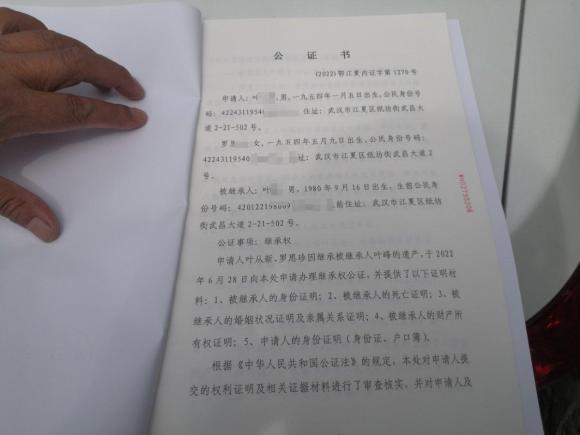 公 证 书
(2022)鄂江夏内证字第1270号
申请人：叶 ，男，一九五四年一月五日出生，公民身份号
码：4224311954 住址：武汉市江夏区纸坊街武昌大
道2-21-502号。
罗 女，一九五四年五月九日出生，公民身份号码：
4224311954 址：武汉市江夏区纸坊街武昌大道2
号。
被继承人：叶 男，1980年9月16日出生，生前公民身
份号码： 前住址：武汉市江夏区纸坊
街武昌大道2-21-502号。
公证事项：继承权
申请人叶从新、罗思珍因继承被继承人叶峰的遗产，于2022
年6月28日向本处申请办理继承权公证，并提供了以下证明材
料：1、被继承人的身份证明；2、被继承人的死亡证明；3、被
继承人的婚姻状况证明及亲属关系证明；4、被继承人的财产所
有权证明；5、申请人的身份证明（身份证、户口簿）。
根据《中华人民共和国公证法》的规定，本处对申请人提
交的权利证明及相关证据材料进行了审查核实，并对申请人及